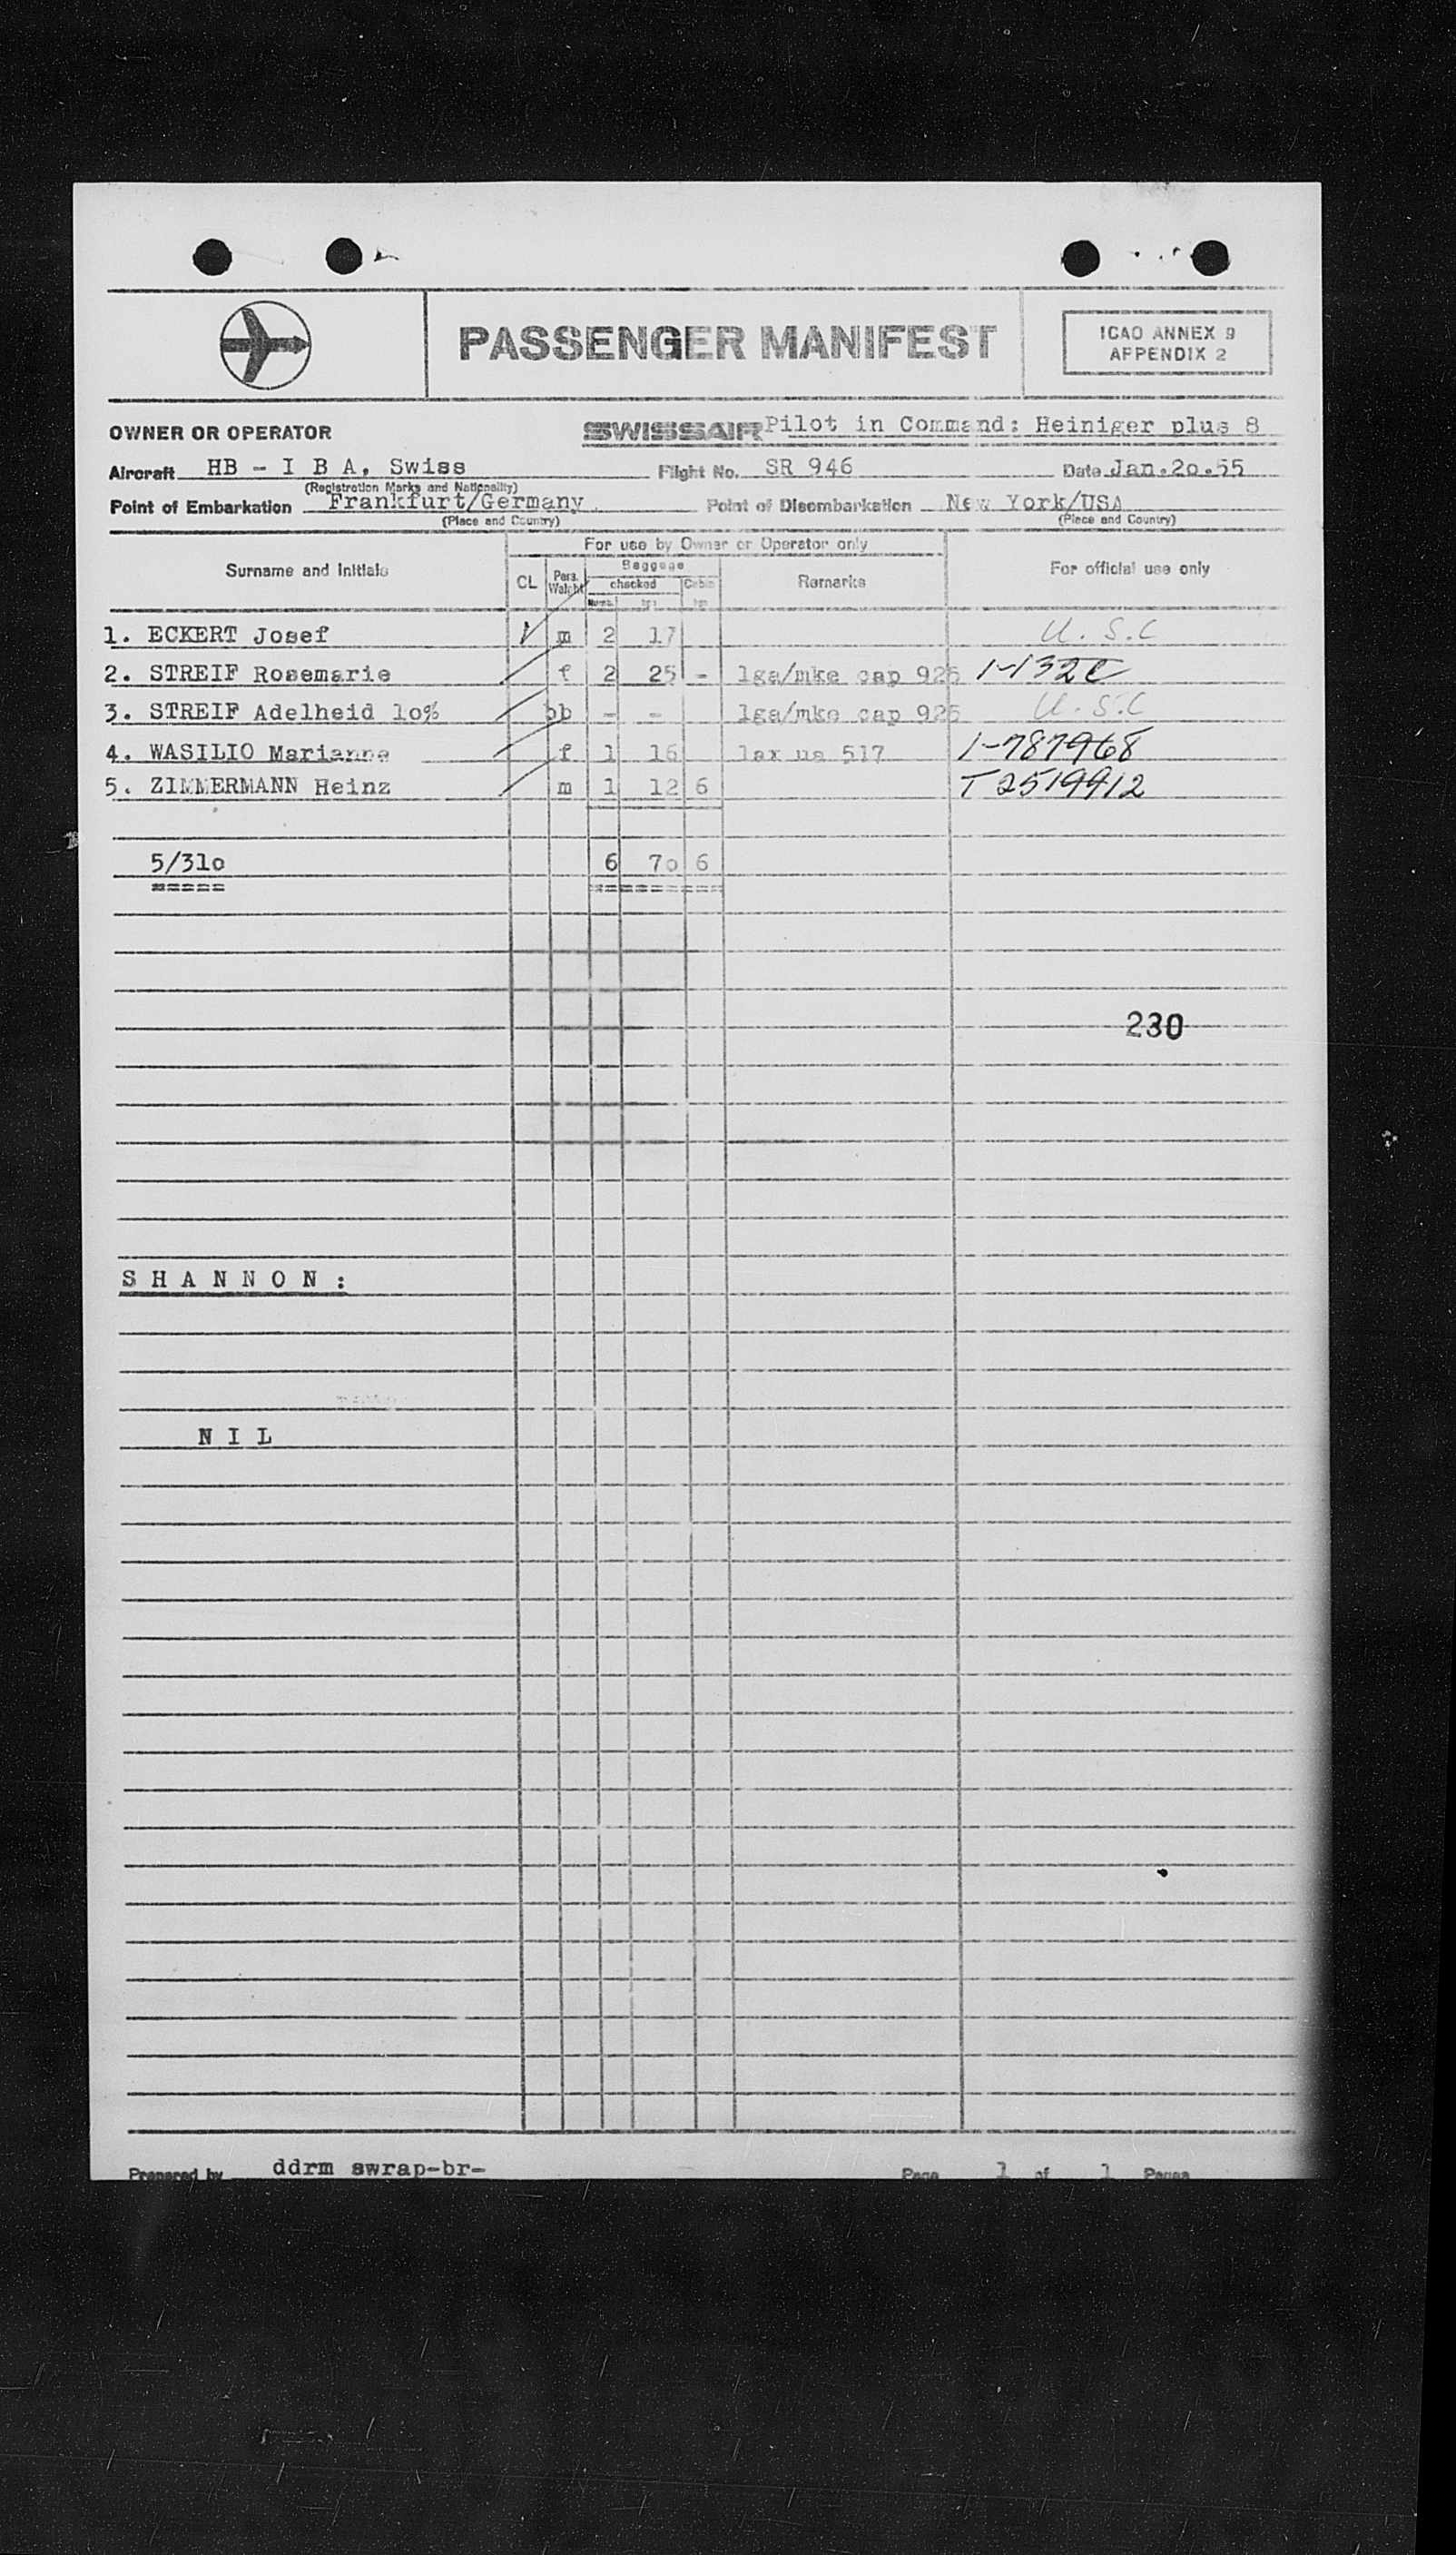 PASSENGER MANIFEST
ICAO ANNEX 9
APPENDIX 2
OWNER OR OPERATOR SWISSAIR Pilot in Command: Heiniger plus 8
Aircraft HB - I B A, Swiss Flight No. SR 946 Date Jan.2o.55
(Registration Marks and Nationality)
Point of Embarkation Frankfurt/Germany Point of Disembarkation New York/USA
(Place and Country) (Place and Country)
For use by Owner or Operator only
Surname and Initials CL Pers. Weight Baggage checked Cabin Remarks For official use only
1. ECKERT Josef m 2 17 U.S.C
2. STREIF Rosemarie f 2 25 - lga/mke cap 925 1-132C
3. STREIF Adelheid 1o% bb - - lga/mke cap 925 U.S.C
4. WASILIO Marianne f 1 16 lax ua 517 1-787968
5. ZIMMERMANN Heinz m 1 12 6 T 2519912
5/31o 6 7o 6
=====
230
S H A N N O N :
N I L
Prepared by ddrm swrap-br- Page 1 of 1 Pages